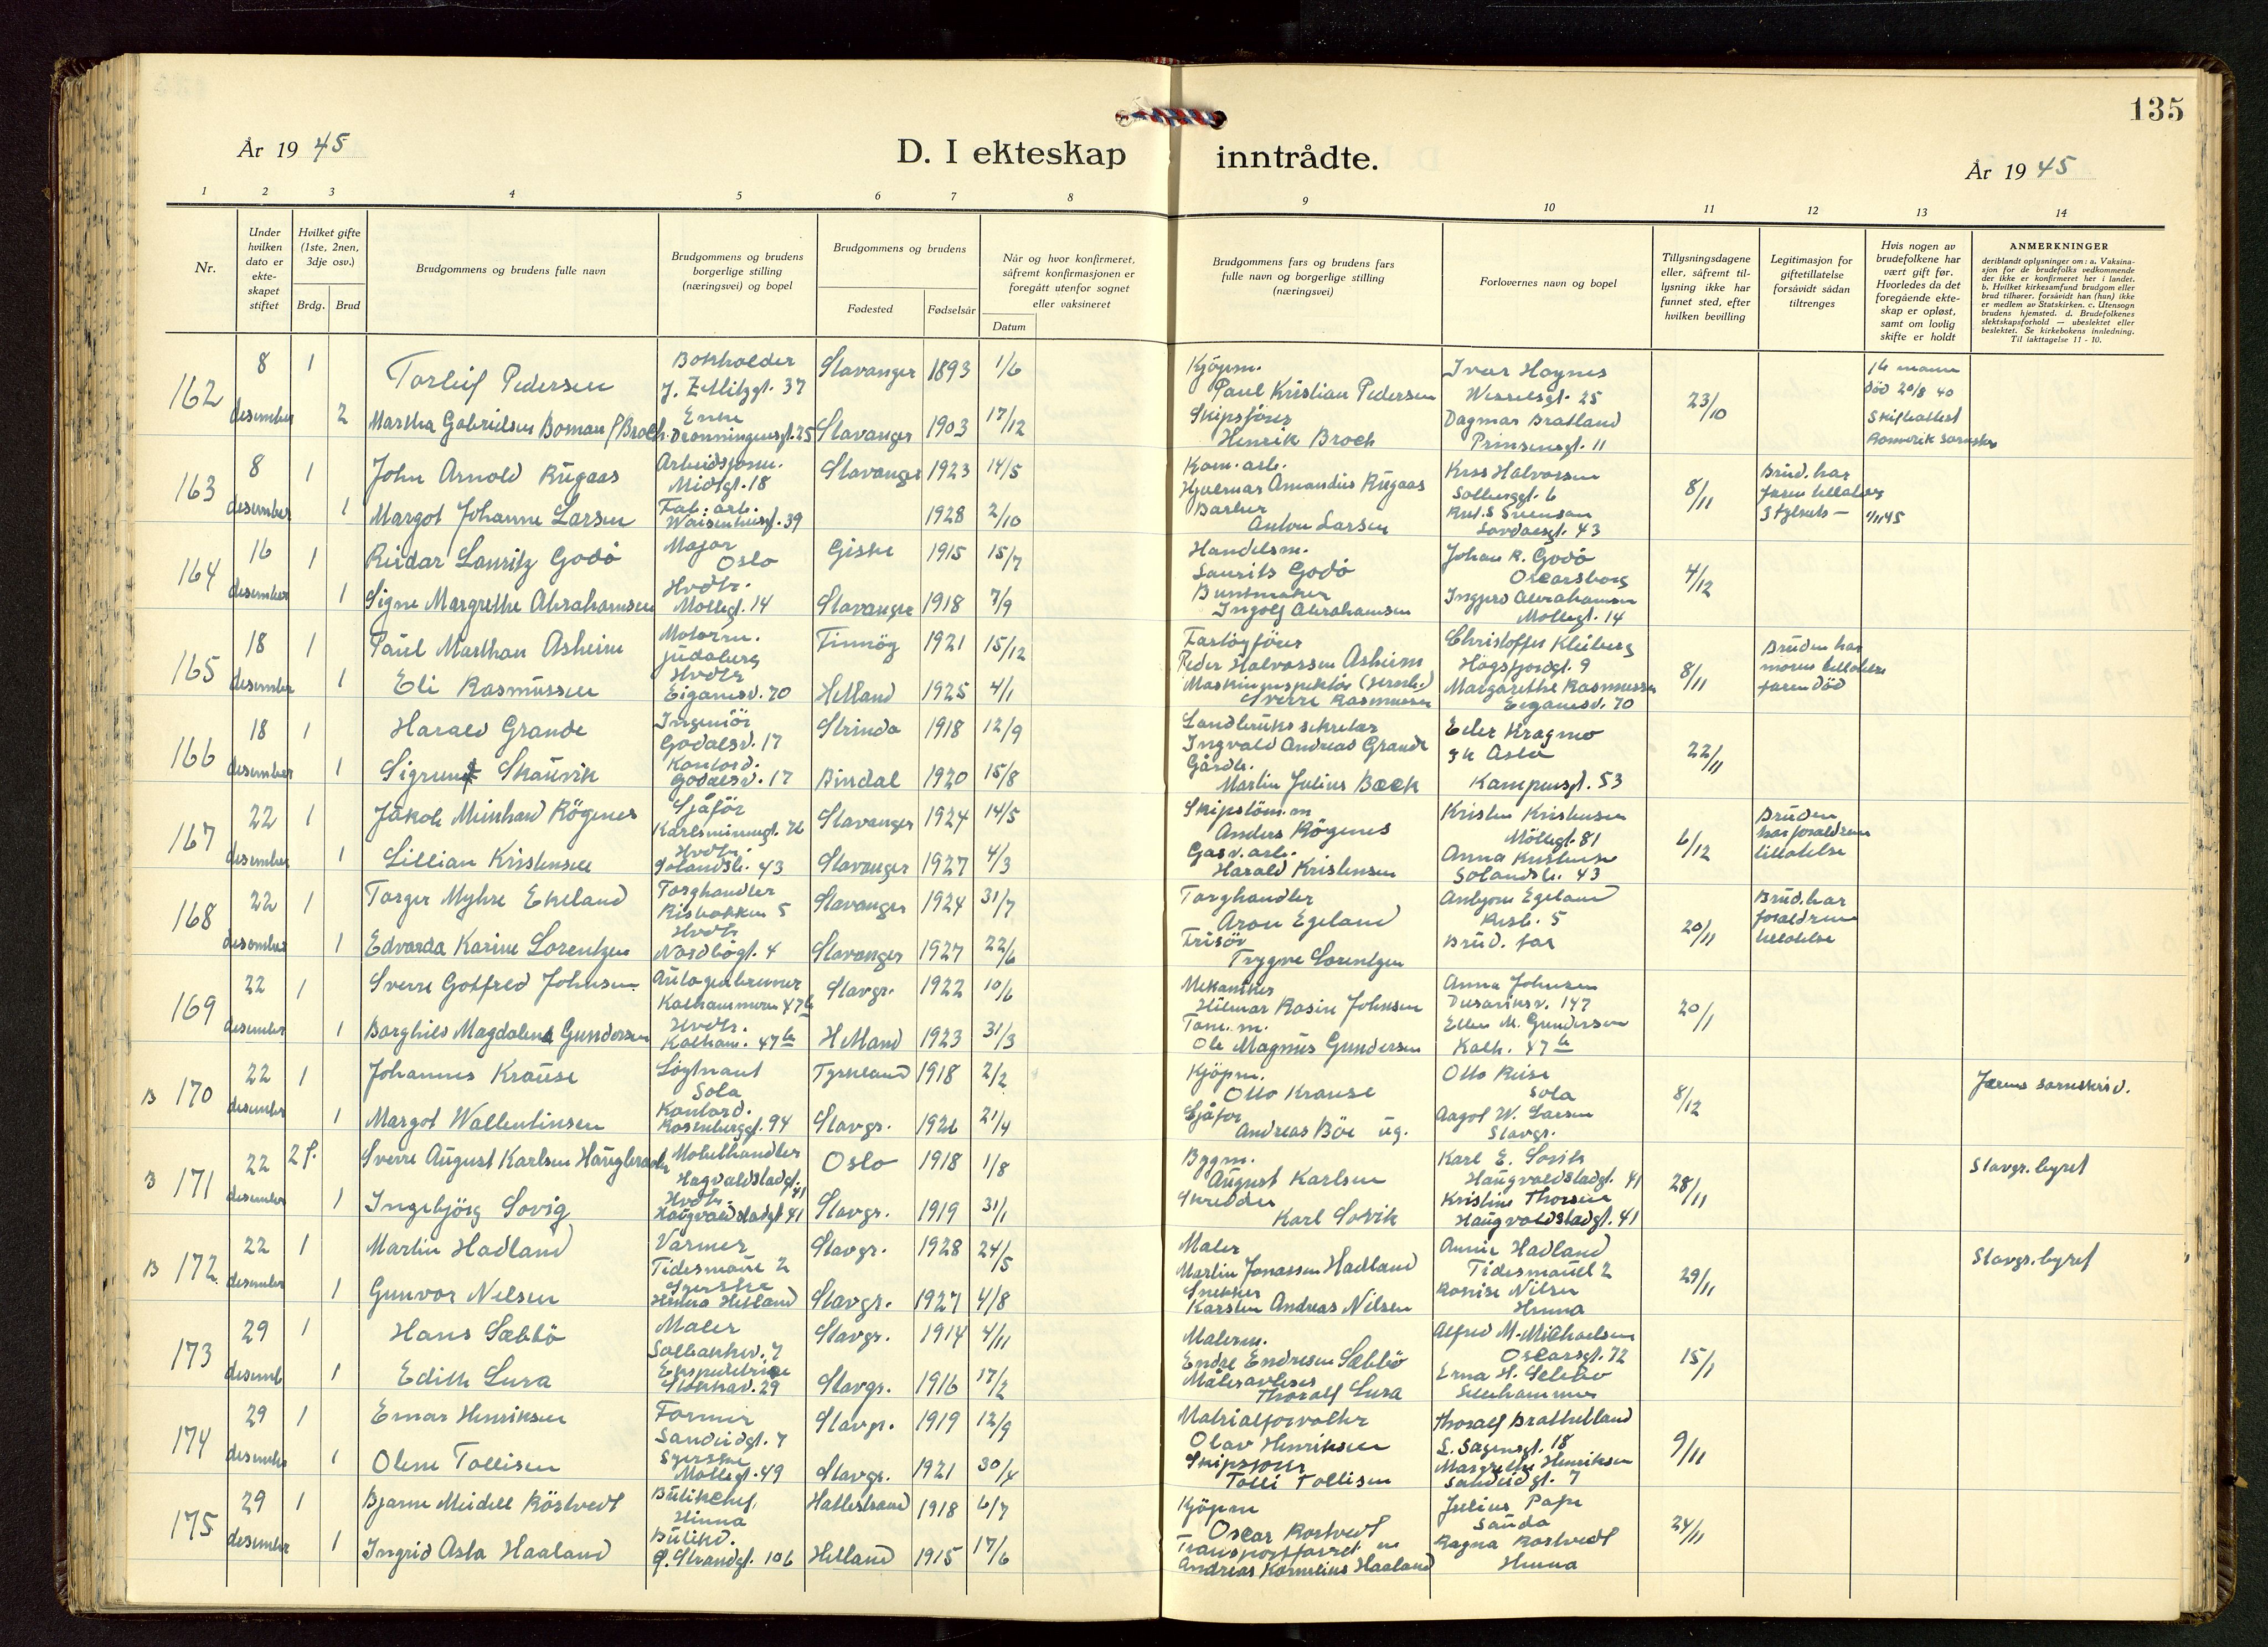 135
År 19 45
D. I ekteskap inntrådte.
År 19 45
1 2 3 4 5 6 7 8 9 10 11 12 13 14
Nr.
Under hvilken dato er ekte-skapet stiftet
Hvilket gifte (1ste, 2nen, 3dje osv.)
Brdg. Brud
Brudgommens og brudens fulle navn
Brudgommens og brudens borgerlige stilling (næringsvei) og bopel
Brudgommens og brudens
Fødested Fødselsår
Når og hvor konfirmeret, såfremt konfirmasjonen er foregått utenfor sognet eller vaksineret
Datum
Brudgommens fars og brudens fars fulle navn og borgerlige stilling (næringsvei)
Forlovernes navn og bopel
Tillysningsdagene eller, såfremt til-lysning ikke har funnet sted, efter hvilken bevilling
Legitimasjon for giftetillatelse forsåvidt sådan tiltrenges
Hvis nogen av brudefolkene har vært gift før. Hvorledes da det foregående ekte-skap er opløst, samt om lovlig skifte er holdt
ANMERKNINGER
deriblandt oplysninger om: a. Vaksina-sjon for de brudefolks vedkommende der ikke er konfirmeret her i landet. b. Hvilket kirkesamfund brudgom eller brud tilhører, forsåvidt han (hun) ikke er medlem av Statskirken. c. Utensogn brudens hjemsted. d. Brudefolkenes slektskapsforhold — ubeslektet eller beslektet. Se kirkebokens innledning. Til iakttagelse 11 - 10.
162 8 desember 1 Torleif Pedersen Bokholder J. Zetlitzgt. 37 Stavanger 1893 1/6 Kjøpm. Paul Kristian Pedersen Ivar Høynes Wesselsgt. 25 23/10 død 20/8 40
2 Martha Gabrielsen Boman f. Broch Enke Dronningensgt. 25 Stavanger 1903 17/12 Skipsfører Henrik Broch Dagmar Bratland Prinsensgt. 11 Skifteattest
163 8 desember 1 John Arnold Rugaas Arbeidsform. Midtgt. 18 Stavanger 1923 14/5 Kom. arb. Hjalmar Amandus Rugaas Halvorsen Solberggt. 6 8/11 Brud. har
1 Margot Johanne Larsen Fab. arb. Waisenhusgt. 39 1928 2/10 Barber Anton Larsen 43
164 16 desember 1 Reidar Lauritz Godø Major Oslo Giske 1915 15/7 Handelsm. Laurits Godø Johan R. Godø Oscarsborg 4/12
1 Signe Margrethe Abrahamsen Hvdtr. Møllegt. 14 Stavanger 1918 7/9 Buntmaker Ingolf Abrahamsen Abrahamsen Møllegt. 14
165 18 desember 1 Paul Marthon Asheim Motorm. Judaberg Finnøy 1921 15/12 Fartøyfører Peder Halvorsen Asheim Christoffer Kleiberg Høgsfjordgt. 9 8/11 Bruden har mors tillatelse faren død
1 Eli Rasmussen Hvdtr Eiganesv. 70 Hetland 1925 4/1 Maskininspektør Sverre Rasmussen Margarethe Rasmussen Eiganesv. 70
166 18 desember 1 Harald Grande Ingeniør Godalsv. 17 Strinda 1918 12/9 Landbrukssekretær Ingvald Andreas Grande Kragmo Oslo 22/11
1 Sigrun Skauvik Kontord. Godalsv. 17 Bindal 1920 15/8 Gårdb. Martin Julius Bock Kampensgt. 53
167 22 desember 1 Jakob Meinhard Røgenes Sjåfør Karlsminnegt. 76 Stavanger 1924 14/5 Skipstøm.m Anders Røgenes Kristen Kristensen Møllegt. 81 6/12 Bruden har foreldrene tillatelse
1 Lillian Kristensen Hvdtr. 43 Stavanger 1927 4/3 Gasv. arb. Harald Kristensen Anna Kristensen 43
168 22 desember 1 Torger Myhre Ekeland Torghandler Risbakken 5 Stavanger 1924 31/7 Torghandler Aron Egeland Egeland Risb. 5 20/11 Brud. har foreldrene tillatelse
1 Edvarda Karine Lorentzen Hvdtr Nordbøgt. 4 Stavanger 1927 22/6 Frisør Trygve Lorentzen Brud. far
169 22 desember 1 Sverre Gotfred Johnsen Kalhammeren 47b Stavgr. 1922 10/6 Mekaniker Hilmar Rasin Johnsen Anna Johnsen Dusaviksv. 147 20/1
1 Borghild Magdalene Gundersen Hvdtr. Kalham. 47b Hetland 1923 31/3 Tom. m. Ole Magnus Gundersen Ellen M. Gundersen Kalh. 47b
B 170 22 desember 1 Johannes Krause Løytnant Sola Tyskland 1918 2/2 Kjøpm. Otto Krause Otto Sola 8/12 Jæren sorenskriv.
1 Margot Wallentinsen Kontord. Rosenberggt. 94 Stavgr. 1921 21/4 Sjåfør Andreas Bøe ug. Aagot W. Larsen Stavgr.
B 171 22 desember 2 f. Sverre August Karlsen Møbelhandler Haugvaldstadgt. 41 Oslo 1918 1/8 Bygm. August Karlsen Karl E. Sørvik Haugvaldstadgt. 41 28/11 Stavgr. byret
1 Ingebjørg Sovig Hvdtr. Haugvaldstadgt 41 Stavgr. 1919 31/1 Skredder Karl Sovik Kristine Thorsen Haugvaldstadgt. 41
B 172 22 desember 1 Martin Hadland Varmer Tidesmauet 2 Stavgr. 1928 24/5 Maler Martin Jonassen Hadland Annie Hadland Tidesmauet 2 29/11 Stavgr. byret
1 Gunvor Nilsen Syerske Hinna Hetland Stavgr. 1927 4/8 Snekker Karsten Andreas Nilsen Nilsen Hinna
173 29 desemb 1 Hans Sæbbø Maler Solbakkev. 7 Stavgr. 1914 4/11 Malerm. Endre Endresen Sæbbø Alfred M. Michaelsen Oscarsgt. 72 15/1
1 Edith Lura Ekspeditrise 29 Stavgr. 1916 17/2 Måleravleser Thoralf Lura Erna H. Sæbbø Lillehammer
174 29 desember 1 Einar Henriksen Former Sandeidgt. 7 Stavgr. 1919 12/9 Materialforvalter Olav Henriksen Thoralf Brathetland L. Sagensgt. 18 9/11
1 Olene Tollisen Syerske Møllegt. 49 Stavgr. 1921 30/4 Skipsfører Tolli Tollisen Margrethe Henriksen Sandeidgt. 7
175 29 desember 1 Bjarne Meidell Röstvedt Butikchef Hinna Holmestrand 1918 6/7 Kjøpm Oscar Rostvedt Julius Pape Sauda 24/11
1 Ingrid Asta Haaland Butikd. Ø. Strandgt. 106 Hetland 1915 17/6 Andreas Kornelius Haaland Ragna Rostvedt Hinna